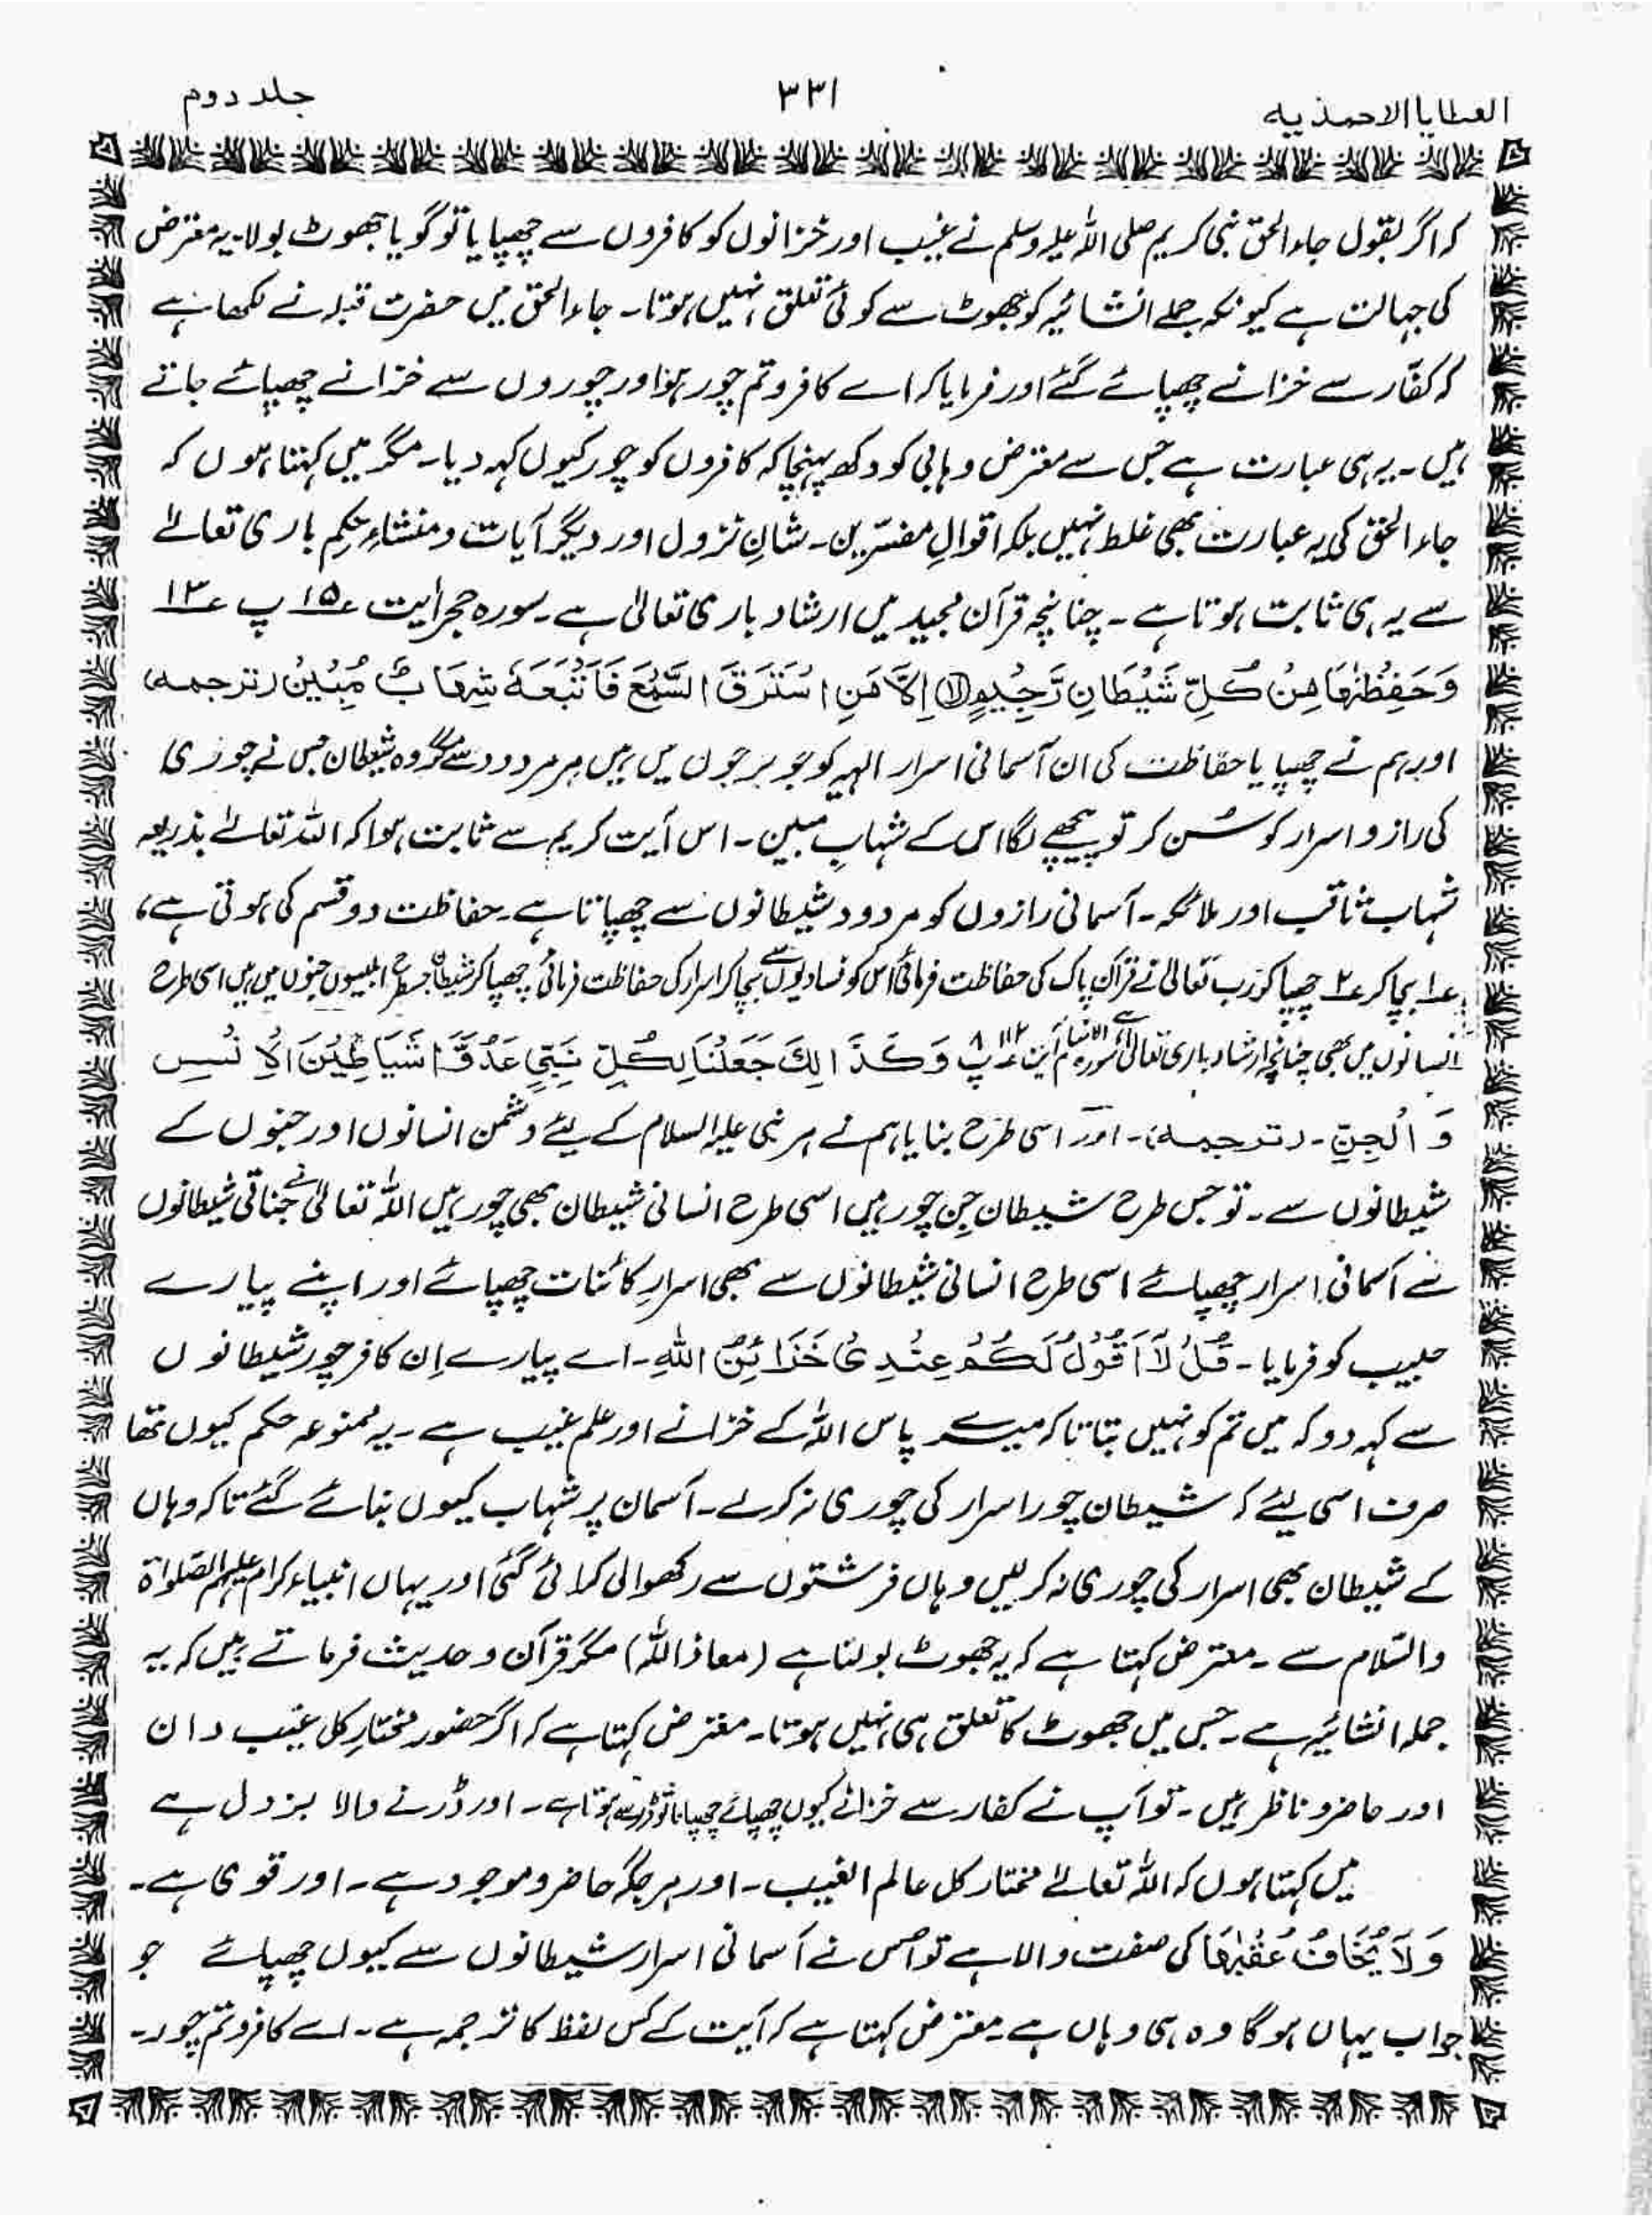 العطايا الاحمديه
٣٣١
جلد دوم
کہ اگر بقول جاءالحق نبی کریم صلی اللہ علیہ وسلم نے غیب اور خزانوں کو کافروں سے چھپایا تو گویا جھوٹ بولا۔ یہ معترض
کی جہالت ہے کیونکہ جملے انشائیہ کو جھوٹ سے کوئی تعلق نہیں ہوتا۔ جاءالحق میں حضرت قبلہ نے لکھا ہے
کہ کفّار سے خزانے چھپائے گئے اور فرمایا کہ اے کافرو تم چور ہو اور چوروں سے خزانے چھپائے جاتے
ہیں۔ یہ ہی عبارت ہے جس سے معترض وہابی کو دکھ پہنچا کہ کافروں کو چور کیوں کہہ دیا۔ مگر میں کہتا ہوں کہ
جاءالحق کی یہ عبارت بھی غلط نہیں بلکہ اقوالِ مفسّرین۔ شانِ نزول اور دیگر آیات و منشاءِ حکمِ باری تعالےٰ
سے یہ ہی ثابت ہوتا ہے۔ چنانچہ قرآن مجید میں ارشاد باری تعالیٰ ہے۔ سورہ حجر اٰیت ؏۱۵ پ ؏۱۳
وَحَفِظْنٰهَا مِنْ كُلِّ شَيْطَانٍ رَّجِيْمٍ ۙ اِلَّا مَنِ اسْتَرَقَ السَّمْعَ فَاَتْبَعَهٗ شِهَابٌ مُّبِيْنٌ (ترجمہ)
اور ہم نے چھپایا حفاظت کی ان آسمانی اسرار الہیہ کو جو برجوں میں ہیں ہر مردود سے مگر وہ شیطان جس نے چوری
کی راز و اسرار کو سُن کر تو پیچھے لگا اس کے شہابِ مبین۔ اس آیت کریمہ سے ثابت ہوا کہ اللہ تعالےٰ بذریعہ
شہاب ثاقب اور ملائکہ۔ آسمانی رازوں کو مردود شیطانوں سے چھپاتا ہے۔ حفاظت دو قسم کی ہوتی ہے،
؏۱ بچا کر ؏۲ چھپا کر رب تعالیٰ نے قرآن پاک کی حفاظت فرمائی اس کو فسادیوں سے بچا کر اسرار کی حفاظت فرمائی چھپا کر شیطان جس طرح ابلیسیوں جنوں میں ہیں اسی طرح
انسانوں میں بھی چنانچہ ارشاد باری تعالیٰ ہے سورہ الانعام آیت ؏۱۱۲ پ ۸ وَكَذَالِكَ جَعَلْنَا لِكُلِّ نَبِيٍّ عَدُوًّا شَيَاطِيْنَ الْاِنْسِ
وَالْجِنِّ۔ (ترجمہ)۔ اور اسی طرح بنایا ہم نے ہر نبی علیہ السلام کے لیئے دشمن انسانوں اور جنوں کے
شیطانوں سے۔ تو جس طرح شیطان جن چور ہیں اسی طرح انسانی شیطان بھی چور ہیں اللہ تعالیٰ نے جناتی شیطانوں
سے آسمانی اسرار چھپائے اسی طرح انسانی شیطانوں سے بھی اسرارِ کائنات چھپائے اور اپنے پیارے
حبیب کو فرمایا۔ قُلْ لَّا اَقُوْلُ لَكُمْ عِنْدِىْ خَزَائِنُ اللهِ۔ اے پیارے اِن کافر چور شیطانوں
سے کہہ دو کہ میں تم کو نہیں بتاتا کہ میرے پاس اللہ کے خزانے اور علم غیب ہے۔ یہ ممنوعہ حکم کیوں تھا
صرف اسی لیئے کہ شیطان چور اسرار کی چوری نہ کرلے۔ آسمان پر شہاب کیوں بنائے گئے تاکہ وہاں
کے شیطان بھی اسرار کی چوری نہ کرلیں وہاں فرشتوں سے رکھوالی کرائی گئی اور یہاں انبیاء کرام علیہم الصلوٰۃ
والسّلام سے۔ معترض کہتا ہے کہ یہ جھوٹ بولنا ہے (معاذاللہ) مگر قرآن و حدیث فرماتے ہیں کہ یہ
جملہ انشائیہ ہے۔ جس میں جھوٹ کا تعلق ہی نہیں ہوتا۔ معترض کہتا ہے کہ اگر حضور مختارِ کل غیب دان
اور حاضر و ناظر ہیں۔ تو آپ نے کفار سے خزانے کیوں چھپائے چھپانا تو ڈر سے ہوتا ہے۔ اور ڈرنے والا بزدل ہے
میں کہتا ہوں کہ اللہ تعالےٰ مختار کل عالم الغیب۔ اور ہر جگہ حاضر و موجود ہے۔ اور قوی ہے۔
وَلَا يَخَافُ عُقْبٰهَا کی صفت والا ہے تو اس نے آسمانی اسرار شیطانوں سے کیوں چھپائے جو
جواب یہاں ہوگا وہ ہی وہاں ہے۔ معترض کہتا ہے کہ آیت کے کس لفظ کا ترجمہ ہے۔ اے کافرو تم چور۔